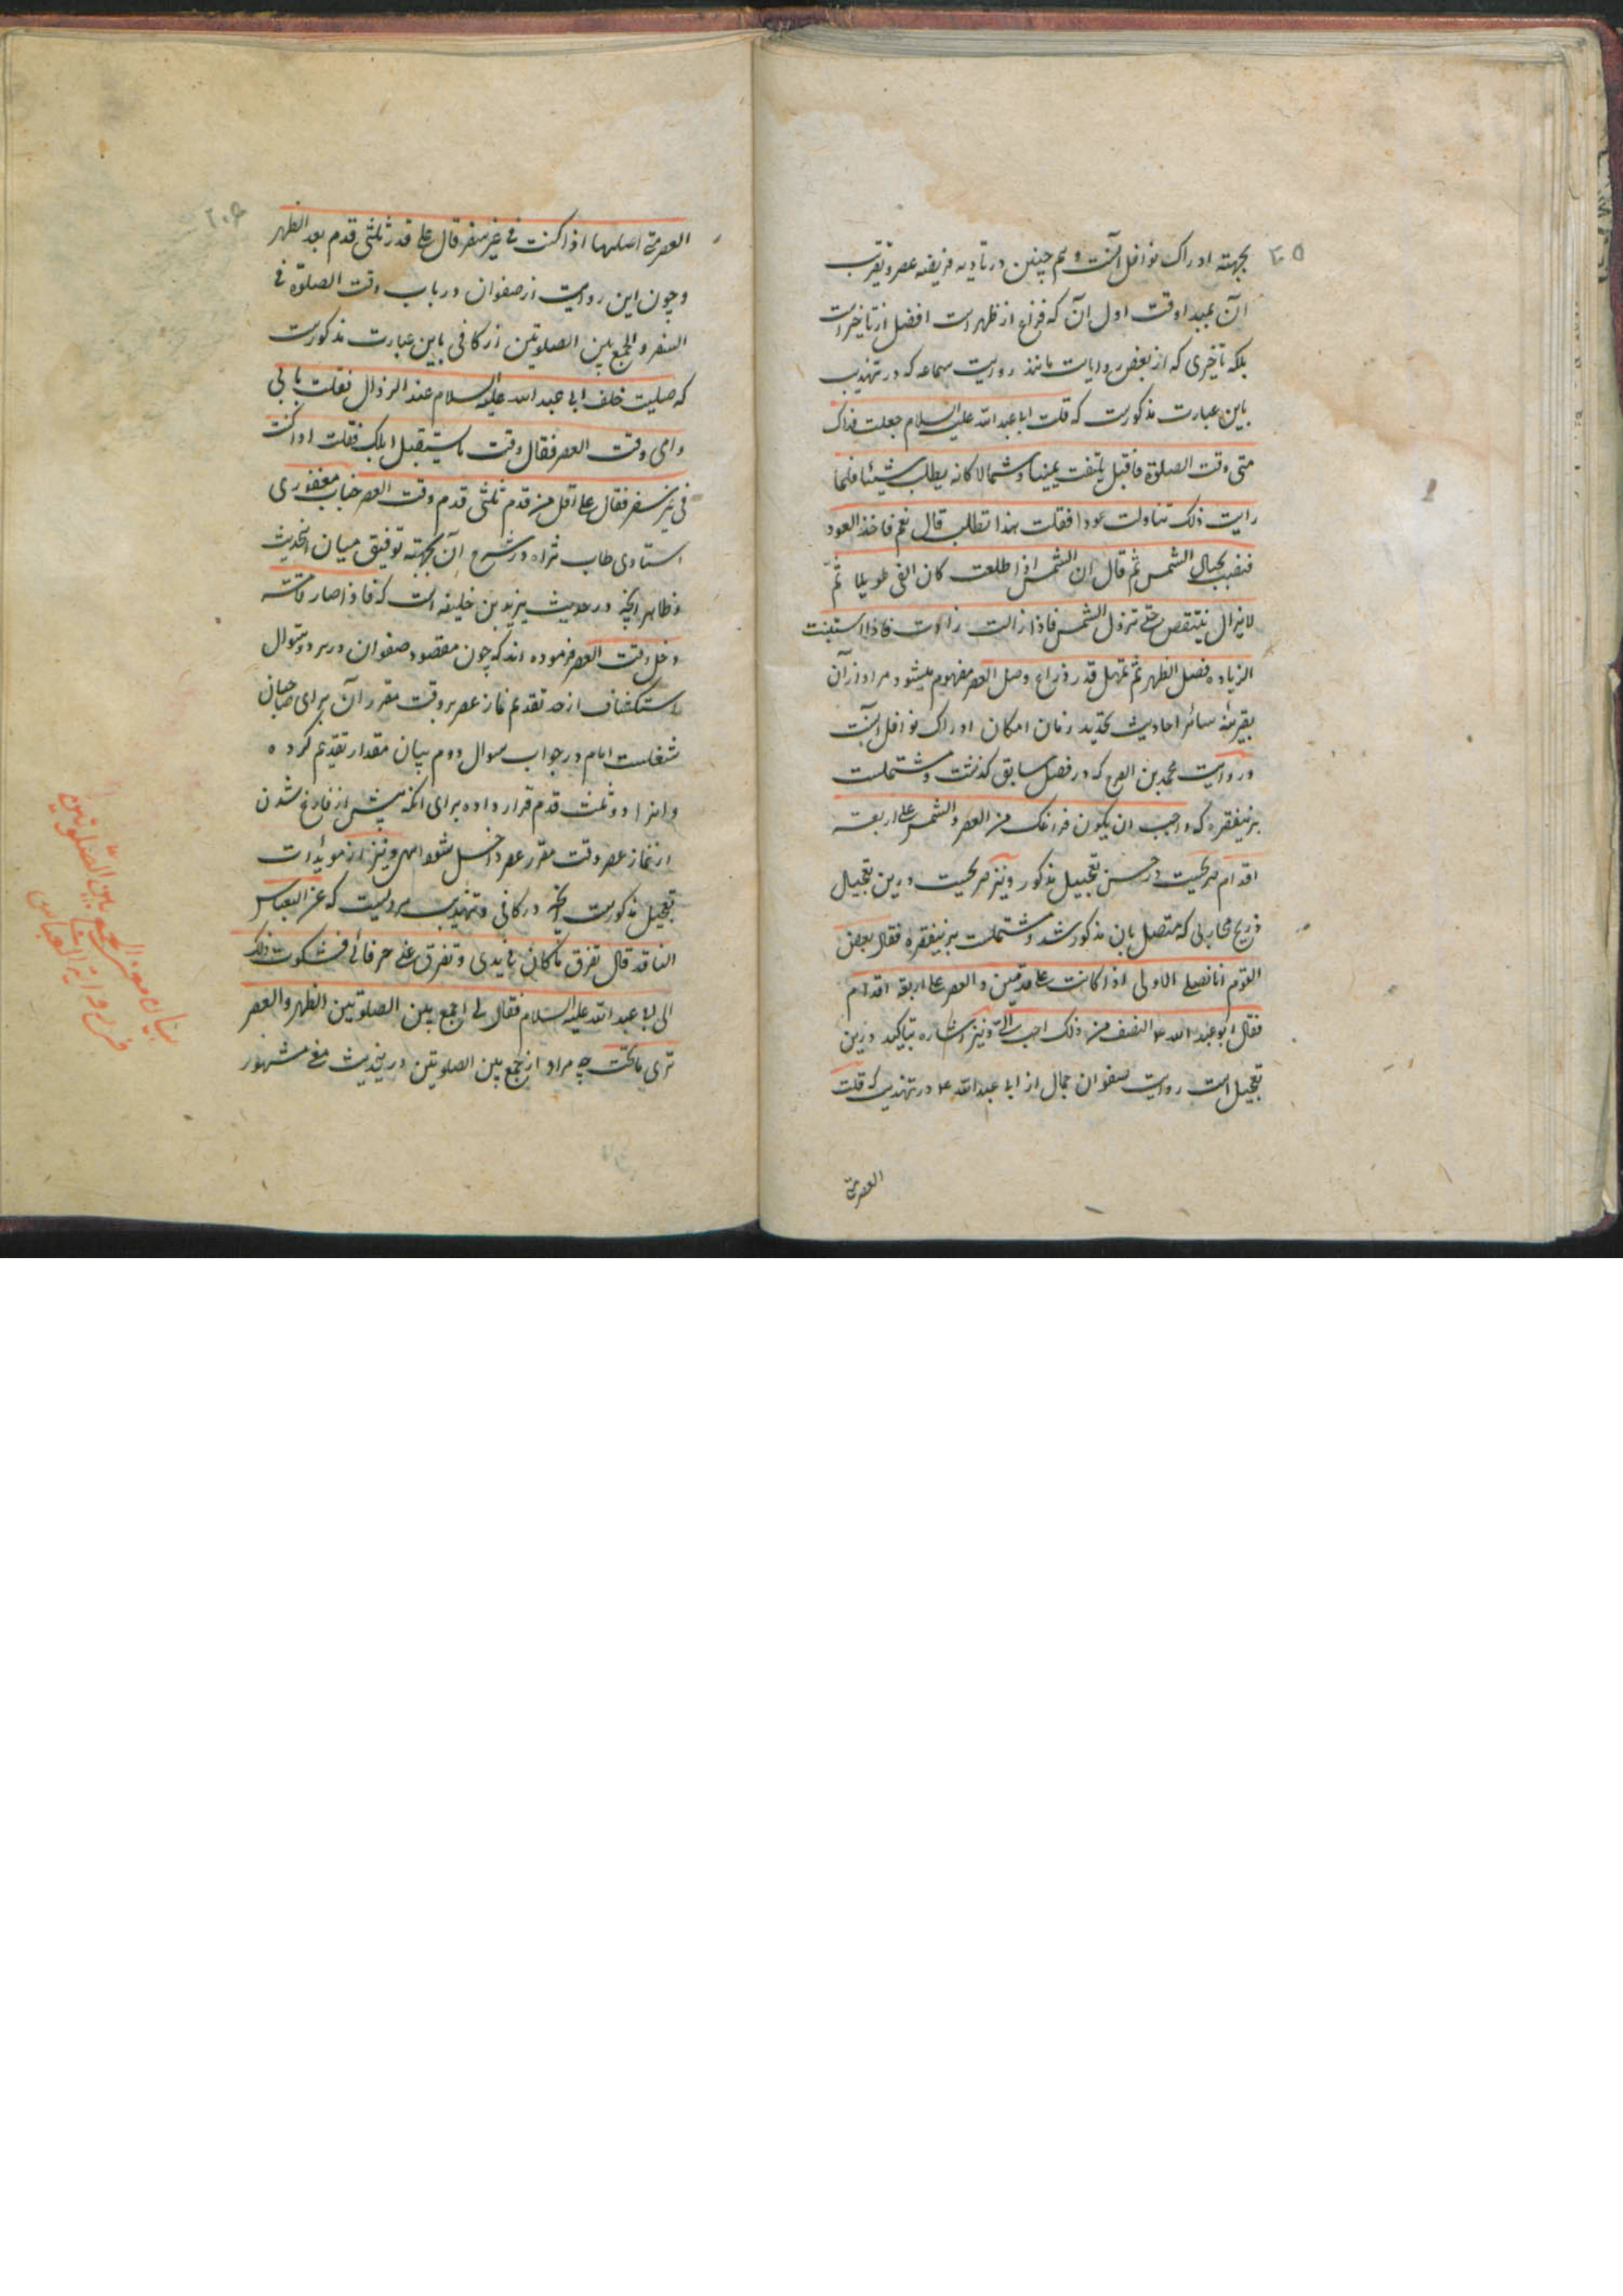 ۲۰۵
بجهته ادراک نوافل آنست و هم چنین در تادیه فریضه عصر و تقرب
آن بمبدا وقت اول آن که فراغ از ظهر است افضل از تاخیر است
بلکه تأخیری که از بعض روایات مانند روایت سماعه که در تهذیب
باین عبارت مذکورست که قلت ابا عبد الله علیه السلام جعلت فداک
متی وقت الصلوة فاقبل یلتفت یمینا و شمالا کانه یطلب شیئا فلما
رایت ذلک تناولت عودا فقلت هذا تطلب قال نعم فاخذ العود
فنصب بحیال الشمس ثم قال ان الشمس اذا طلعت کان الفی طویلا ثم
لا یزال ینتقص حتی تزول الشمس فاذا زالت زادت فاذا استبنت
الزیاده فصل الظهر ثم تمهل قدر ذراع وصل العصر مفهوم میشود مراد از آن
بقرینهٔ سائر احادیث تحدید زمان امکان ادراک نوافل آنست
و روایت محمد بن الفرج که در فصل سابق گذشت و مشتملست
برینفقره که و احب ان یکون فراغک من العصر و الشمس علی اربعة
اقدام صریحیست در حسن تعجیل مذکور و نیز صریحیست درین تعجیل
ذریح محاربی که متصل بان مذکور شد و مشتملست برینفقره فقال بعض
القوم انا نصلی الاولی اذا کانت علی قدمین و العصر علی اربعة اقدام
فقال ابو عبد الله ع النصف من ذلک احب الیّ و نیز اشاره بتاکید درین
تعجیل است روایت صفوان جمال از ابی عبد الله ع در تهذیب که قلت
العصر متی
۲۰۶
العصر متی اصلیها اذا کنت فی غیر سفر قال علی قدر ثلثی قدم بعد الظهر
و چون این روایت از صفوان در باب وقت الصلوة فی
السفر و الجمع بین الصلوتین از کافی باین عبارت مذکورست
که صلیت خلف ابی عبد الله علیه السلام عند الزوال فقلت بابی
و امی وقت العصر فقال وقت ما یستقبل ابلک فقلت اذا کنت
فی غیر سفر فقال علی اقل من قدم ثلثی قدم وقت العصر جناب مغفوری
استادی طاب ثراه در شرح آن بجهته توفیق میان اینحدیث
و ظاهر آنچه در حدیث یزید بن خلیفه است که فاذا صار قامتة
دخل وقت العصر فرموده اند که چون مقصود صفوان در هر دو سوال
استکشاف از حد تقدیم نماز عصر بر وقت مقرر آن برای صاحبان
شغلست امام در جواب سوال دوم بیان مقدار تقدیم کرده
و انرا دو ثلث قدم قرار داده برای انکه پیش از فارغ شدن
از نماز عصر وقت مقرر عصر داخل شود انتهی و نیز از مویدات
تعجیل مذکورست آنچه در کافی و تهذیب مرویست که عن العباس
الناقد قال تفرق ما کان فی یدی و تفرق عنی حرفائی فشکوت ذلک
الی ابی عبد الله علیه السلام فقال لی اجمع بین الصلوتین الظهر و العصر
تری ما تحب چه مراد از جمع بین الصلوتین درینحدیث معنی مشهور
بیان معنی الجمع بین الصلوتین
فی روایة العباس